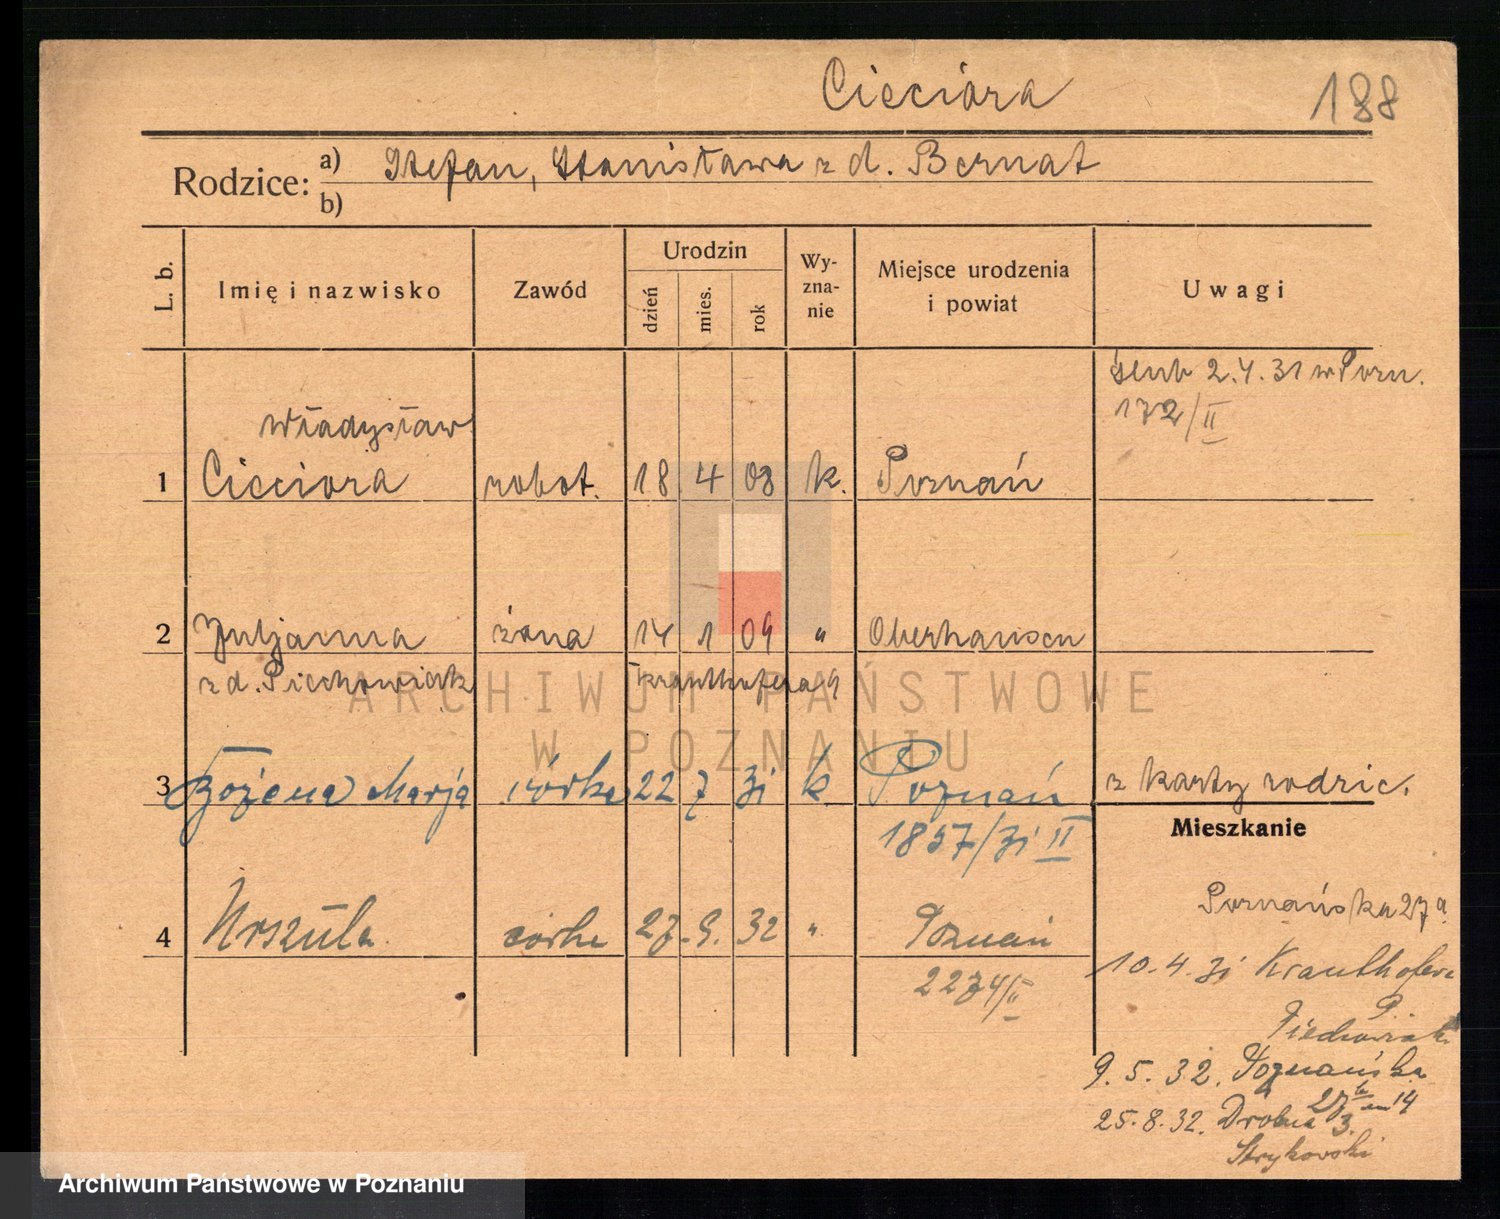 Cieciora 188
Rodzice: a) Stefan, Stanisława z d. Bernat
b)
L. b. Imię i nazwisko Zawód Urodzin dzień mies. rok Wy-zna-nie Miejsce urodzenia i powiat Uwagi
ślub 2.4.31 w Pozn.
172/II
Władysław
1 Cieciora robot. 18 4 08 k. Poznań
2 Juljanna żona 14 1 09 " Oberhausen
z d. Piechowiak Krauthofera 9
3 Bożena Marja córka 22 7 31 k. Poznań z karty rodzic.
1857/31 II
Mieszkanie
Poznańska 27a
4 Urszula córka 27. 9. 32 " Poznań
10.4.31 Krauthofera
2274/II
9.
Piechowiak
9.5.32. Poznańska
27b m 14
25.8.32. Drobna 3.
Strykowski
ARCHIWUM PAŃSTWOWE
W POZNANIU
Archiwum Państwowe w Poznaniu